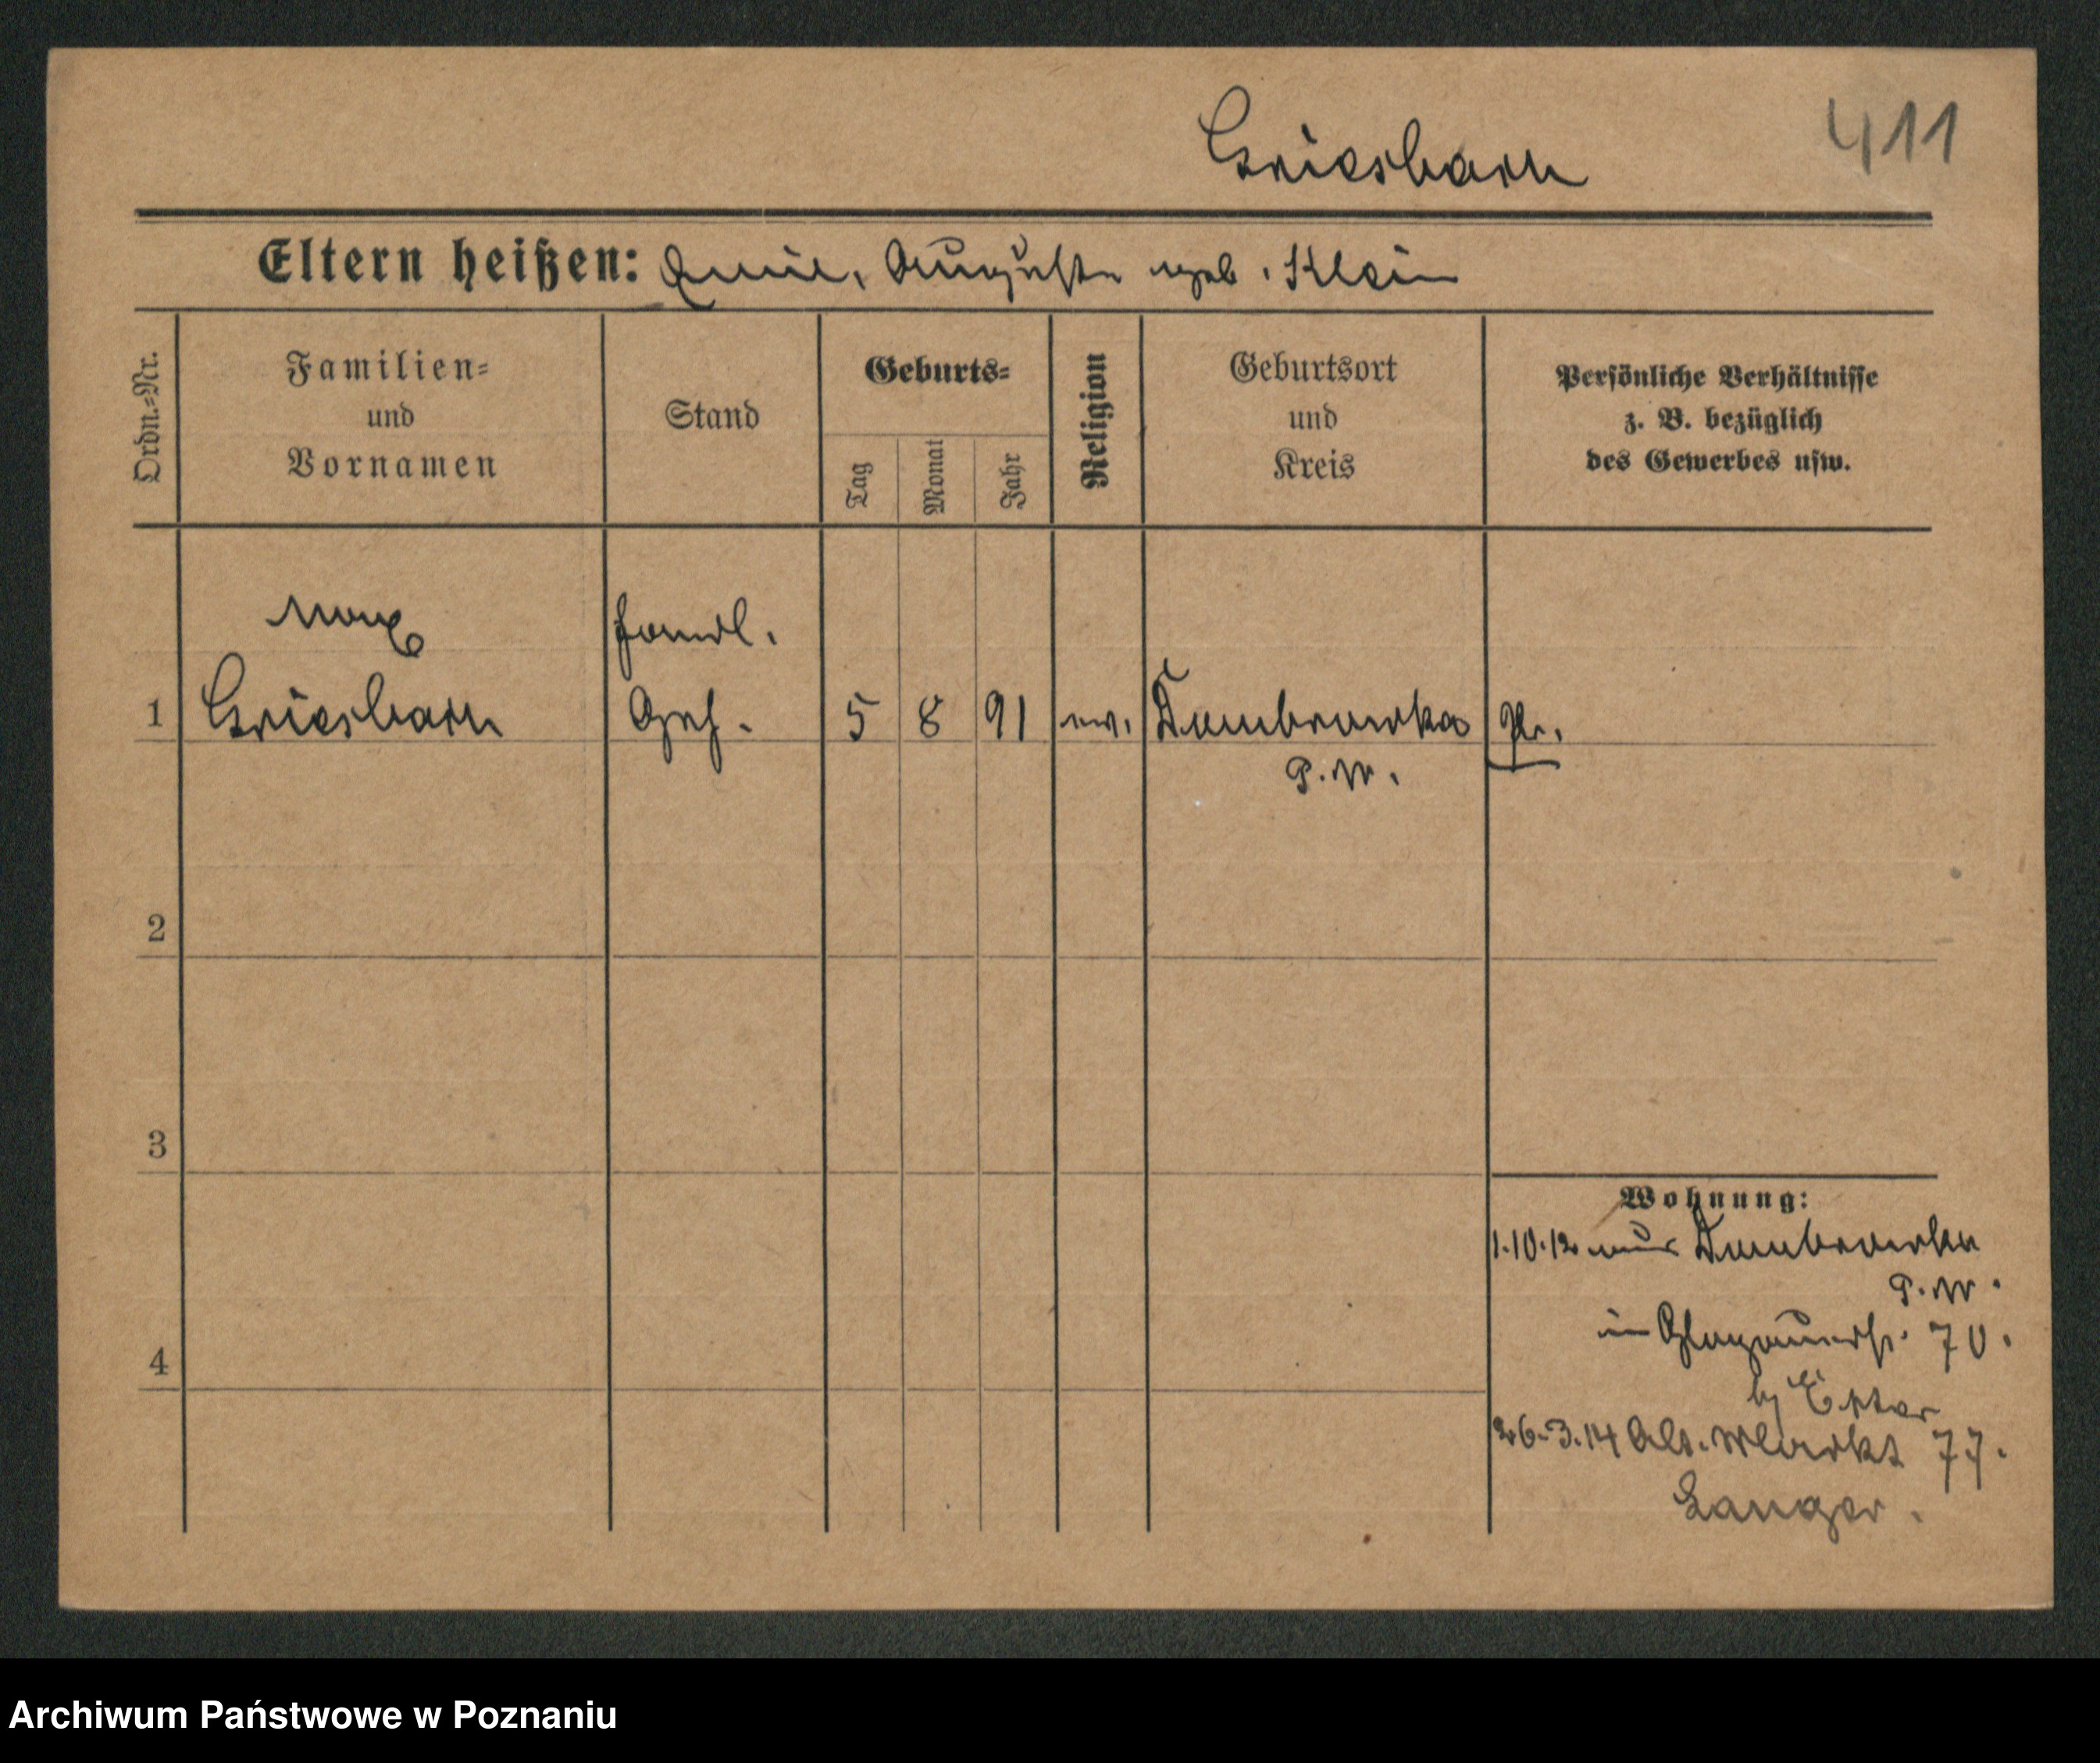 Griesbach 411
Eltern heißen: Emil, Auguste geb. Klein
Ordn.=Nr.
Familien=
und
Vornamen
Stand
Geburts=
Tag
Monat
Jahr
Religion
Geburtsort
und
Kreis
Persönliche Verhältnisse
z. B. bezüglich
des Gewerbes usw.
Max Handl.
1 Griesbach Geh. 5 8 91 ev. Dombrowka Pr.
P. W.
2
3
4
Wohnung:
1.10.12 aus Dombrowka
P. W.
in Glogauerstr. 70.
b/
26.3.14 Alt. Markt 77.
Langer.
Archiwum Państwowe w Poznaniu